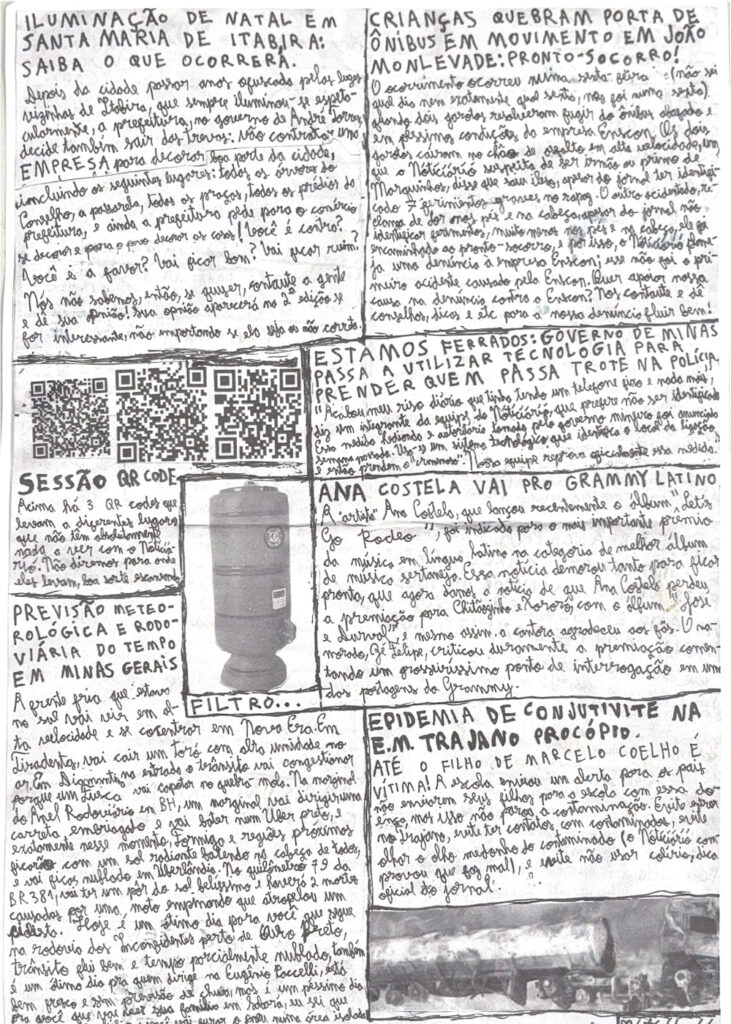 ILUMINAÇÃO DE NATAL EM
SANTA MARIA DE ITABIRA:
SAIBA O QUE OCORRERÁ.
Depois da cidade passar anos ofuscada pelas luzes
vizinhas de Itabira, que sempre iluminou-se espeta-
cularmente, a prefeitura, no governo de André Torres,
decide também sair das trevas: vão contratar uma
EMPRESA para decorar boa parte da cidade,
incluindo os seguintes lugares: todas as árvores do
Conselho, a passarela, todas as praças, todos os prédios da
prefeitura, e ainda a prefeitura pede para o comércio
se decorar e para o povo decorar as casas! Você é contra?
Você é a favor? Vai ficar bom? Vai ficar ruim?
Nós não sabemos, então, se quiser, contate a gente
e dê sua opinião! Sua opinião aparecerá na 2ª edição se
for interessante, não importando se ela seja ou não correta.
CRIANÇAS QUEBRAM PORTA DE
ÔNIBUS EM MOVIMENTO EM JOÃO
MONLEVADE: PRONTO-SOCORRO!
O ocorrimento ocorreu numa sexta-feira (não sei
qual dia nem exatamente qual sexta, mas foi numa sexta)
quando dois garotos resolveram fugir do ônibus abafado e
em péssimas condições da empresa Enscon. Os dois
garotos caíram no chão de asfalto em alta velocidade, um
que o Noticiário suspeita de ser irmão ou primo de
Marquinhos, disse que saiu ileso, apesar do jornal ter identifi-
cado 7 ferimentos graves no rapaz. O outro acidentado, re-
clama de dor nos pés e na cabeça, apesar do jornal não
identificar ferimentos, muito menos no pés e na cabeça, ele foi
encaminhado ao pronto-socorro, e por isso, o Noticiário plane-
ja uma denúncia à empresa Enscon; esse não foi o pri-
meiro acidente causado pela Enscon. Quer apoiar nossa
causa na denúncia contra a Enscon? Nos contate e dê
conselhos, dicas e etc para a nossa denúncia fluir bem!
ESTAMOS FERRADOS: GOVERNO DE MINAS
PASSA A UTILIZAR TECNOLOGIA PARA
PRENDER QUEM PASSA TROTE NA POLÍCIA.
"Acabou meu riso diário que tinha tendo um telefone fixo e nada mais",
diz um integrante da equipe do Noticiário, que prefere não ser identificado
Essa medida hedionda e autoritária tomada pelo governo mineiro foi anunciada
semana passada. Usa-se um sistema tecnológico que identifica o local da ligação,
e então prendem o "criminoso". Nossa equipe reprova oficialmente essa medida.
SESSÃO QR CODE
Acima há 3 QR codes que
levam a diferentes lugares
que não têm absolutamente
nada a ver com o Noticiá-
rio. Não diremos para onde
eles levam, boa sorte
FILTRO...
ANA COSTELA VAI PRO GRAMMY LATINO
A "artista" Ana Costela, que lançou recentemente o álbum "Let's
Go Rodeo", foi indicada para o mais importante premio
da música em língua latina na categoria de melhor álbum
de música sertaneja. Essa notícia demorou tanto para ficar
pronta, que agora damos a notícia de que Ana Costela perdeu
a premiação para Chitãozinho e Xororó, com o álbum "José
e Durval", e mesmo assim, a cantora agradeceu aos fãs. O na-
morado, Zé Felipe, criticou duramente a premiação comen-
tando um grosseiríssimo ponto de interrogação em uma
das postagens do Grammy.
PREVISÃO METEO-
ROLÓGICA E RODO-
VIÁRIA DO TEMPO
EM MINAS GERAIS
A frente fria que estava
no sul vai vir em al-
ta velocidade e se concentrar em Nova Era. Em
Tiradentes, vai cair um toró com alta umidade no
ar. Em Diamantina, na entrada o trânsito vai congestionar
porque um Fusca vai capotar no quebra-mola. Na marginal
do Anel Rodoviário em BH, um marginal vai dirigir uma
carreta, embriagado e vai bater num Uber preto, e
exatamente nesse momento, Formiga e regiões próximas
ficarão com um sol radiante batendo na cabeça de todos,
e vai ficar nublado em Uberlândia. No quilômetro 79 da
BR 381, vai ter um pôr do sol belíssimo e haverá 2 mortes
causadas por uma moto empinando que atropelou um
pedestre. Hoje é um ótimo dia para você que segue
na rodovia dos Inconfidentes perto de Ouro Preto,
trânsito flui bem e tempo parcialmente nublado, também
é um ótimo dia pra quem dirige na Eugênio Paccelli, está
bem fresco e sem previsão de chuva, mas é um péssimo dia
pra você que vai ver sua família em Sabará, eu sei que
EPIDEMIA DE CONJUTIVITE NA
E.M. TRAJANO PROCÓPIO.
ATÉ O FILHO DE MARCELO COELHO É
VÍTIMA! A escola enviou um alerta para os pais
não enviarem seus filhos para a escola com essa do-
ença, mas isso não parou a contaminação. Evite entrar
no Trajano, evite ter contatos, com contaminados, evite
olhar o olho medonho do contaminado (o Noticiário com-
provou que faz mal), e evite não usar colírio, dica
oficial do jornal.